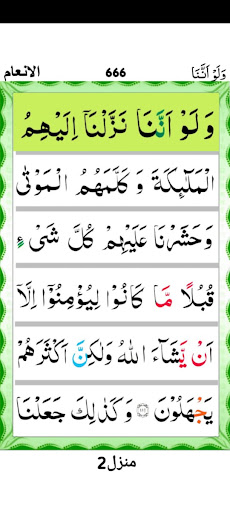 الانعام 666 وَلَوْ اَنَّنَا
وَلَوْ اَنَّنَا نَزَّلْنَاۤ اِلَيْهِمُ
الْمَلٰٓئِكَةَ وَ كَلَّمَهُمُ الْمَوْتٰى
وَحَشَرْنَا عَلَيْهِمْ كُلَّ شَىْءٍ
قُبُلًا مَّا كَانُوْا لِيُؤْمِنُوْۤا اِلَّاۤ
اَنْ يَّشَآءَ اللّٰهُ وَلٰكِنَّ اَكْثَرَهُمْ
يَجْهَلُوْنَ ۝١١١ وَكَذٰلِكَ جَعَلْنَا
منزل2